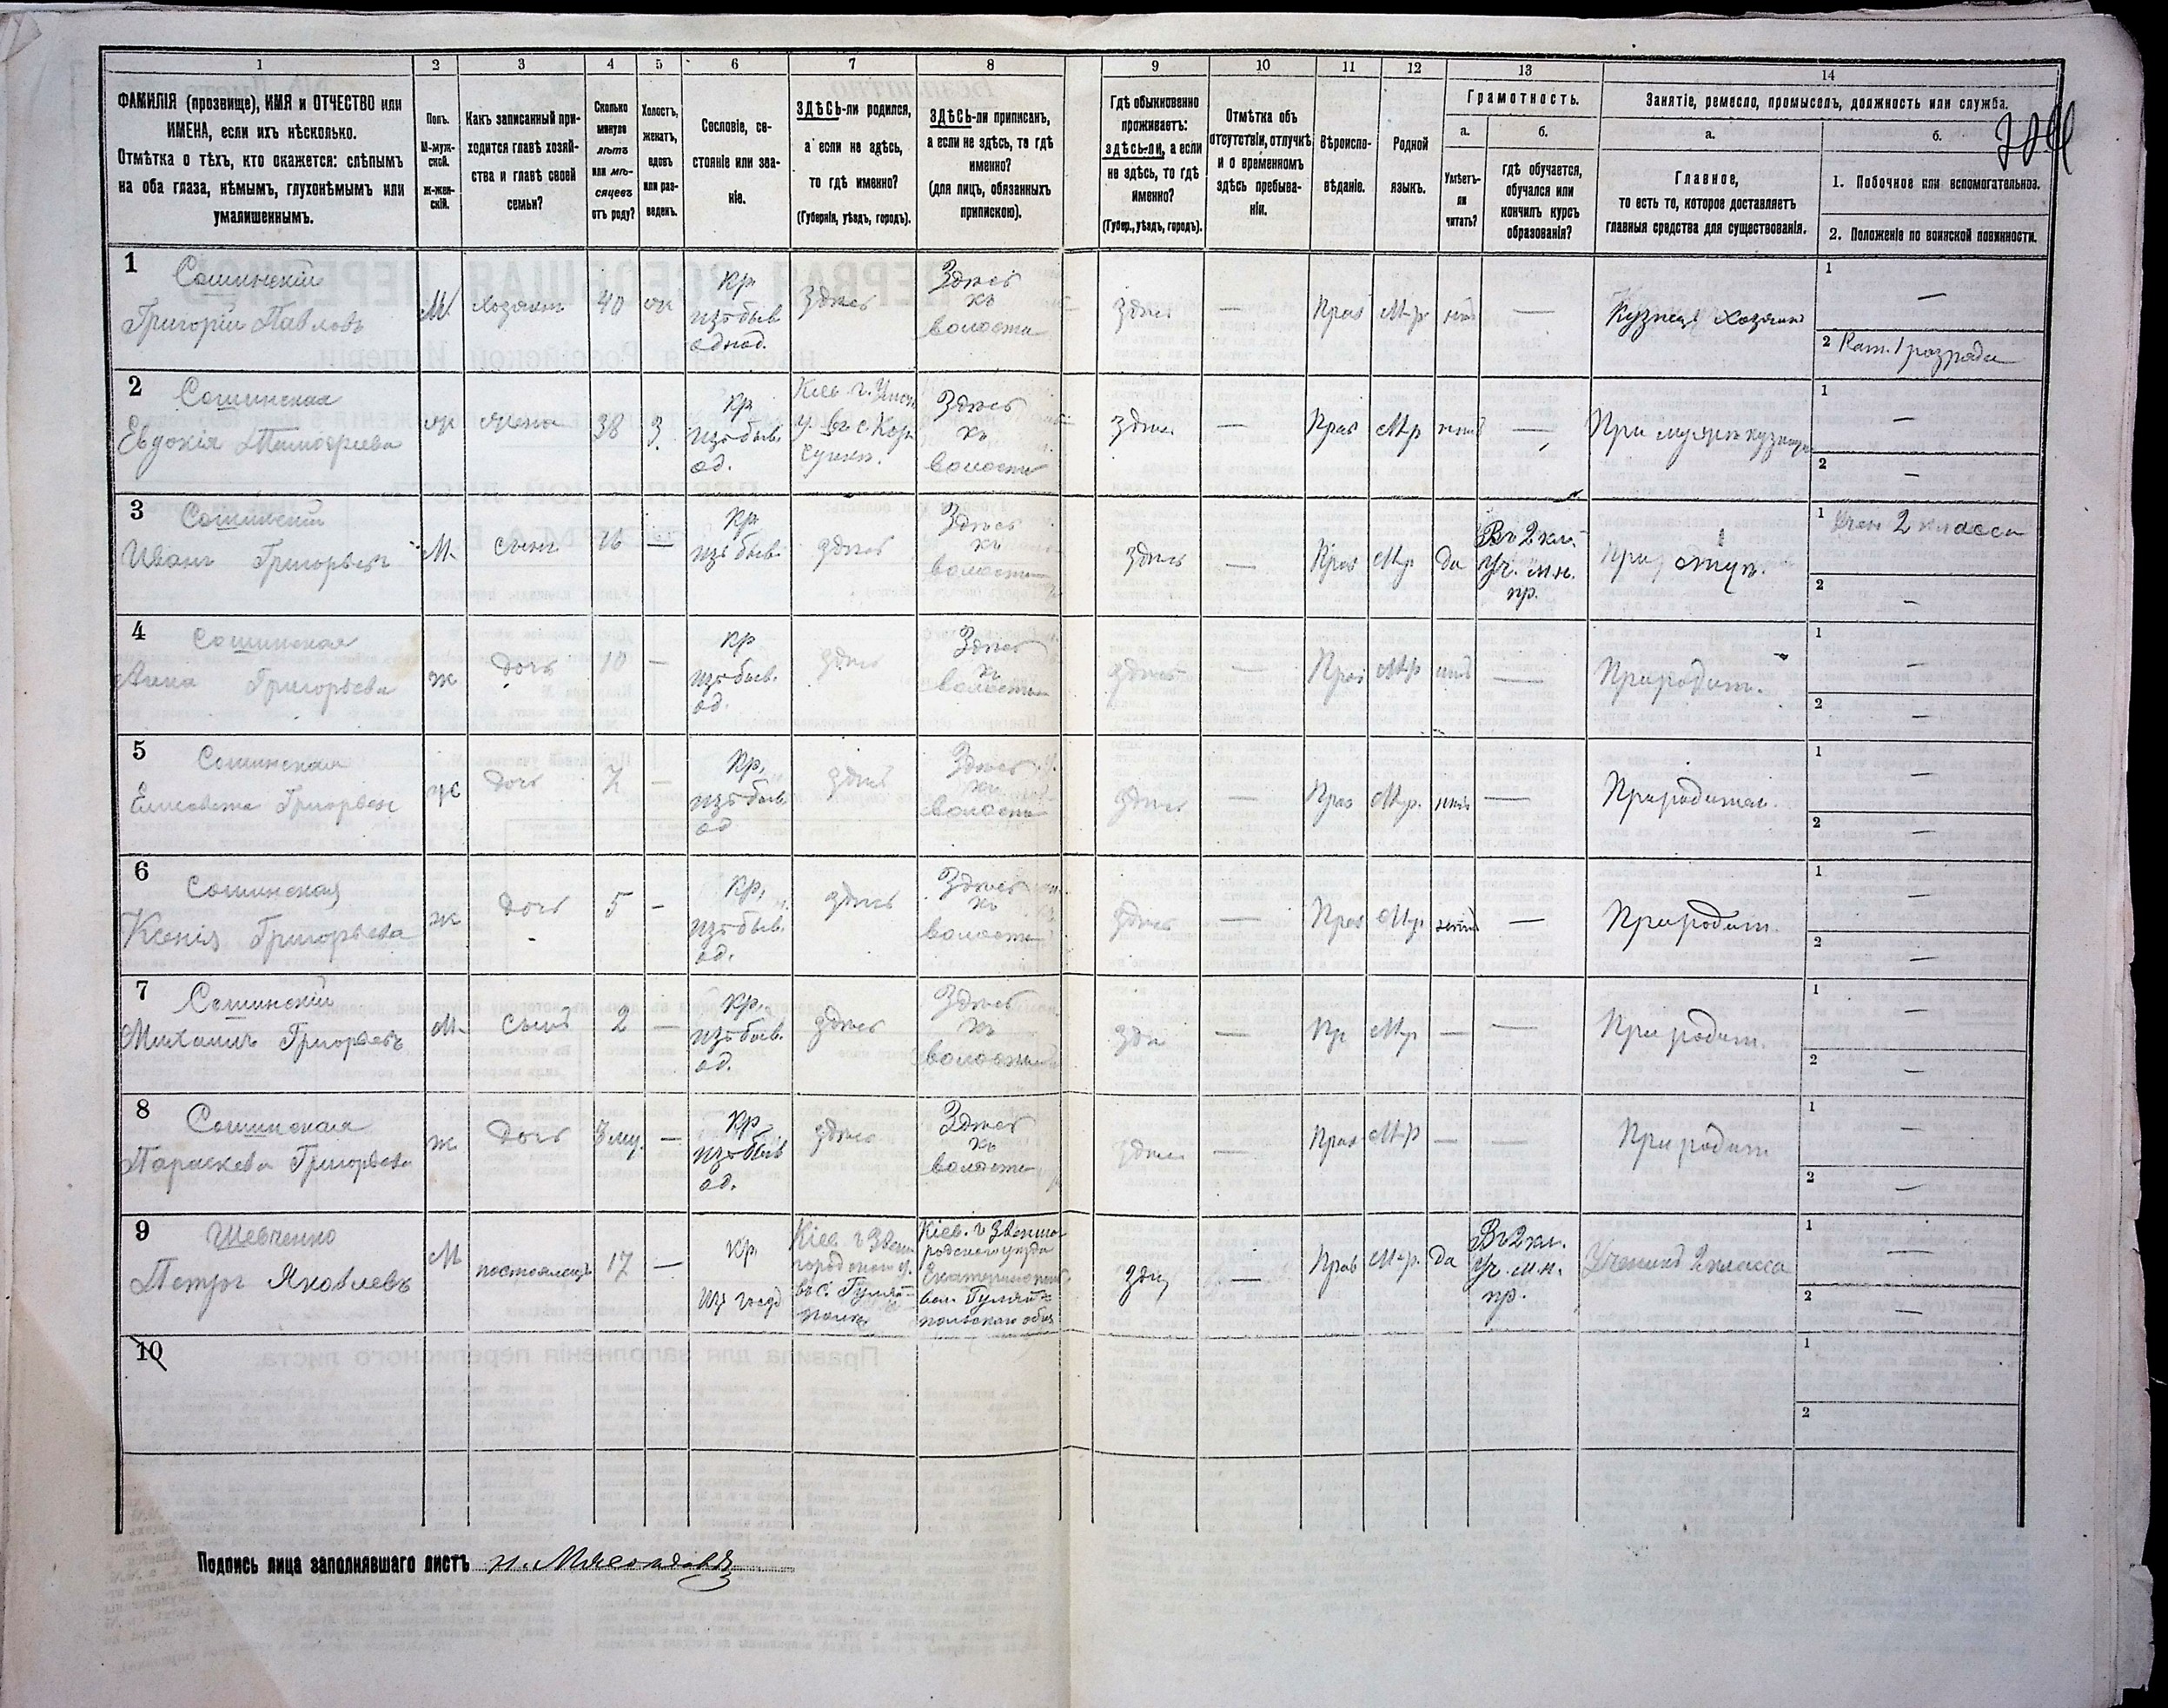 1 2 3 4 5 6 7 8 9 10 11 12 13 14
ФАМИЛІЯ (прозвище), ИМЯ и ОТЧЕСТВО или
ИМЕНА, если ихъ нѣсколько.
Отмѣтка о тѣхъ, кто окажется: слѣпымъ
на оба глаза, нѣмымъ, глухонѣмымъ или
умалишеннымъ.
Полъ.
М-муж-
ской.
ж-жен-
скій.
Какъ записанный при-
ходится главѣ хозяй-
ства и главѣ своей
семьи?
Сколько
минуло
лѣтъ
или мѣ-
сяцевъ
отъ роду?
Холостъ,
женатъ,
вдовъ
или раз-
веденъ.
Сословіе, со-
стояніе или зва-
ніе.
ЗДѢСЬ-ли родился,
а если не здѣсь,
то гдѣ именно?
(Губернія, уѣздъ, городъ).
ЗДѢСЬ-ли приписанъ,
а если не здѣсь, то гдѣ
именно?
(для лицъ, обязанныхъ
припискою).
Гдѣ обыкновенно
проживаетъ:
здѣсь-ли, а если
не здѣсь, то гдѣ
именно?
(Губер., уѣздъ, городъ).
Отмѣтка объ
отсутствіи, отлучкѣ
и о временномъ
здѣсь пребыва-
ніи.
Вѣроиспо-
вѣданіе.
Родной
языкъ.
Грамотность.
а.
Умѣетъ-
ли
читать?
б.
гдѣ обучается,
обучался или
кончилъ курсъ
образованія?
Занятіе, ремесло, промыселъ, должность или служба.
а.
Главное,
то есть то, которое доставляетъ
главныя средства для существованія.
б.
1. Побочное или вспомогательное.
2. Положеніе по воинской повинности.
1
Сошинскій
Григорій Павловъ
М.
хозяинъ
40
Кр
изъ быв
однод.
Здѣсь
Здѣсь
къ
волости
здѣсь
—
Прав
М-р
—
Кузнецъ хозяинъ
1
—
2 Рат. 1 розряда
2
Сошинская
Евдокія
ж
жена
38
З
Кр
изъ быв.
од.
Кіев. г.
Здѣсь
къ
волости
здѣсь
—
Прав
М-р
—
При мужѣ кузнецѣ
1
—
2
—
3
Сошинскій
Иванъ Григорьевъ
М.
сынъ
16
—
Кр
изъ быв.
здѣсь
Здѣсь
къ
волости
здѣсь
—
Прав
М-р
да
Въ 2 кл.
Уч. м.н.
пр.
При отцѣ.
1 Учен 2 класса
2
—
4
Сошинская
Анна Григорьева
ж
дочь
10
—
Кр
изъ быв.
од.
здѣсь
Здѣсь
къ
волости
здѣсь
—
Прав
М-р
—
При родит.
1
—
2
—
5
Сошинская
Елисавета Григорьев
ж
дочь
7
—
Кр,
изъ быв.
од
здѣсь
Здѣсь
къ
волости
здѣсь
—
Прав
М-р.
—
При родител.
1
—
2
—
6
Сошинская
Ксенія Григорьева
ж
дочь
5
—
Кр,
изъ быв.
од.
здѣсь
Здѣсь
къ
волости
здѣсь
—
Прав
М-р.
—
При родит.
1
—
2
—
7
Сошинскій
Михаилъ Григорьевъ
М.
сынъ
2
—
Кр,
изъ быв.
од.
здѣсь
Здѣсь
къ
волости
здѣ
—
Пр
М-р
—
—
При родит.
1
—
2
—
8
Сошинская
Параскева Григорьева
ж
дочь
—
Кр,
изъ быв
од.
здѣсь
Здѣсь
къ
волости
здѣсь
—
Прав
М-р
—
—
При родит
1
—
2
—
9
Шевченко
Петръ Яковлевъ
М
постоялецъ
17
—
Кр.
Кіев. г Звени
городского у.
въ с. Гуляй-
поль
Кіев. г Звениго
родского уезда
Екатеринопол
вол. Гуляй-
польскаго общ
—
Прав
М-р.
да
Въ 2 кл.
Уч. м.н.
пр.
Ученикъ 2 класса
1
—
2
—
10
1
2
Подпись лица заполнявшаго листъ